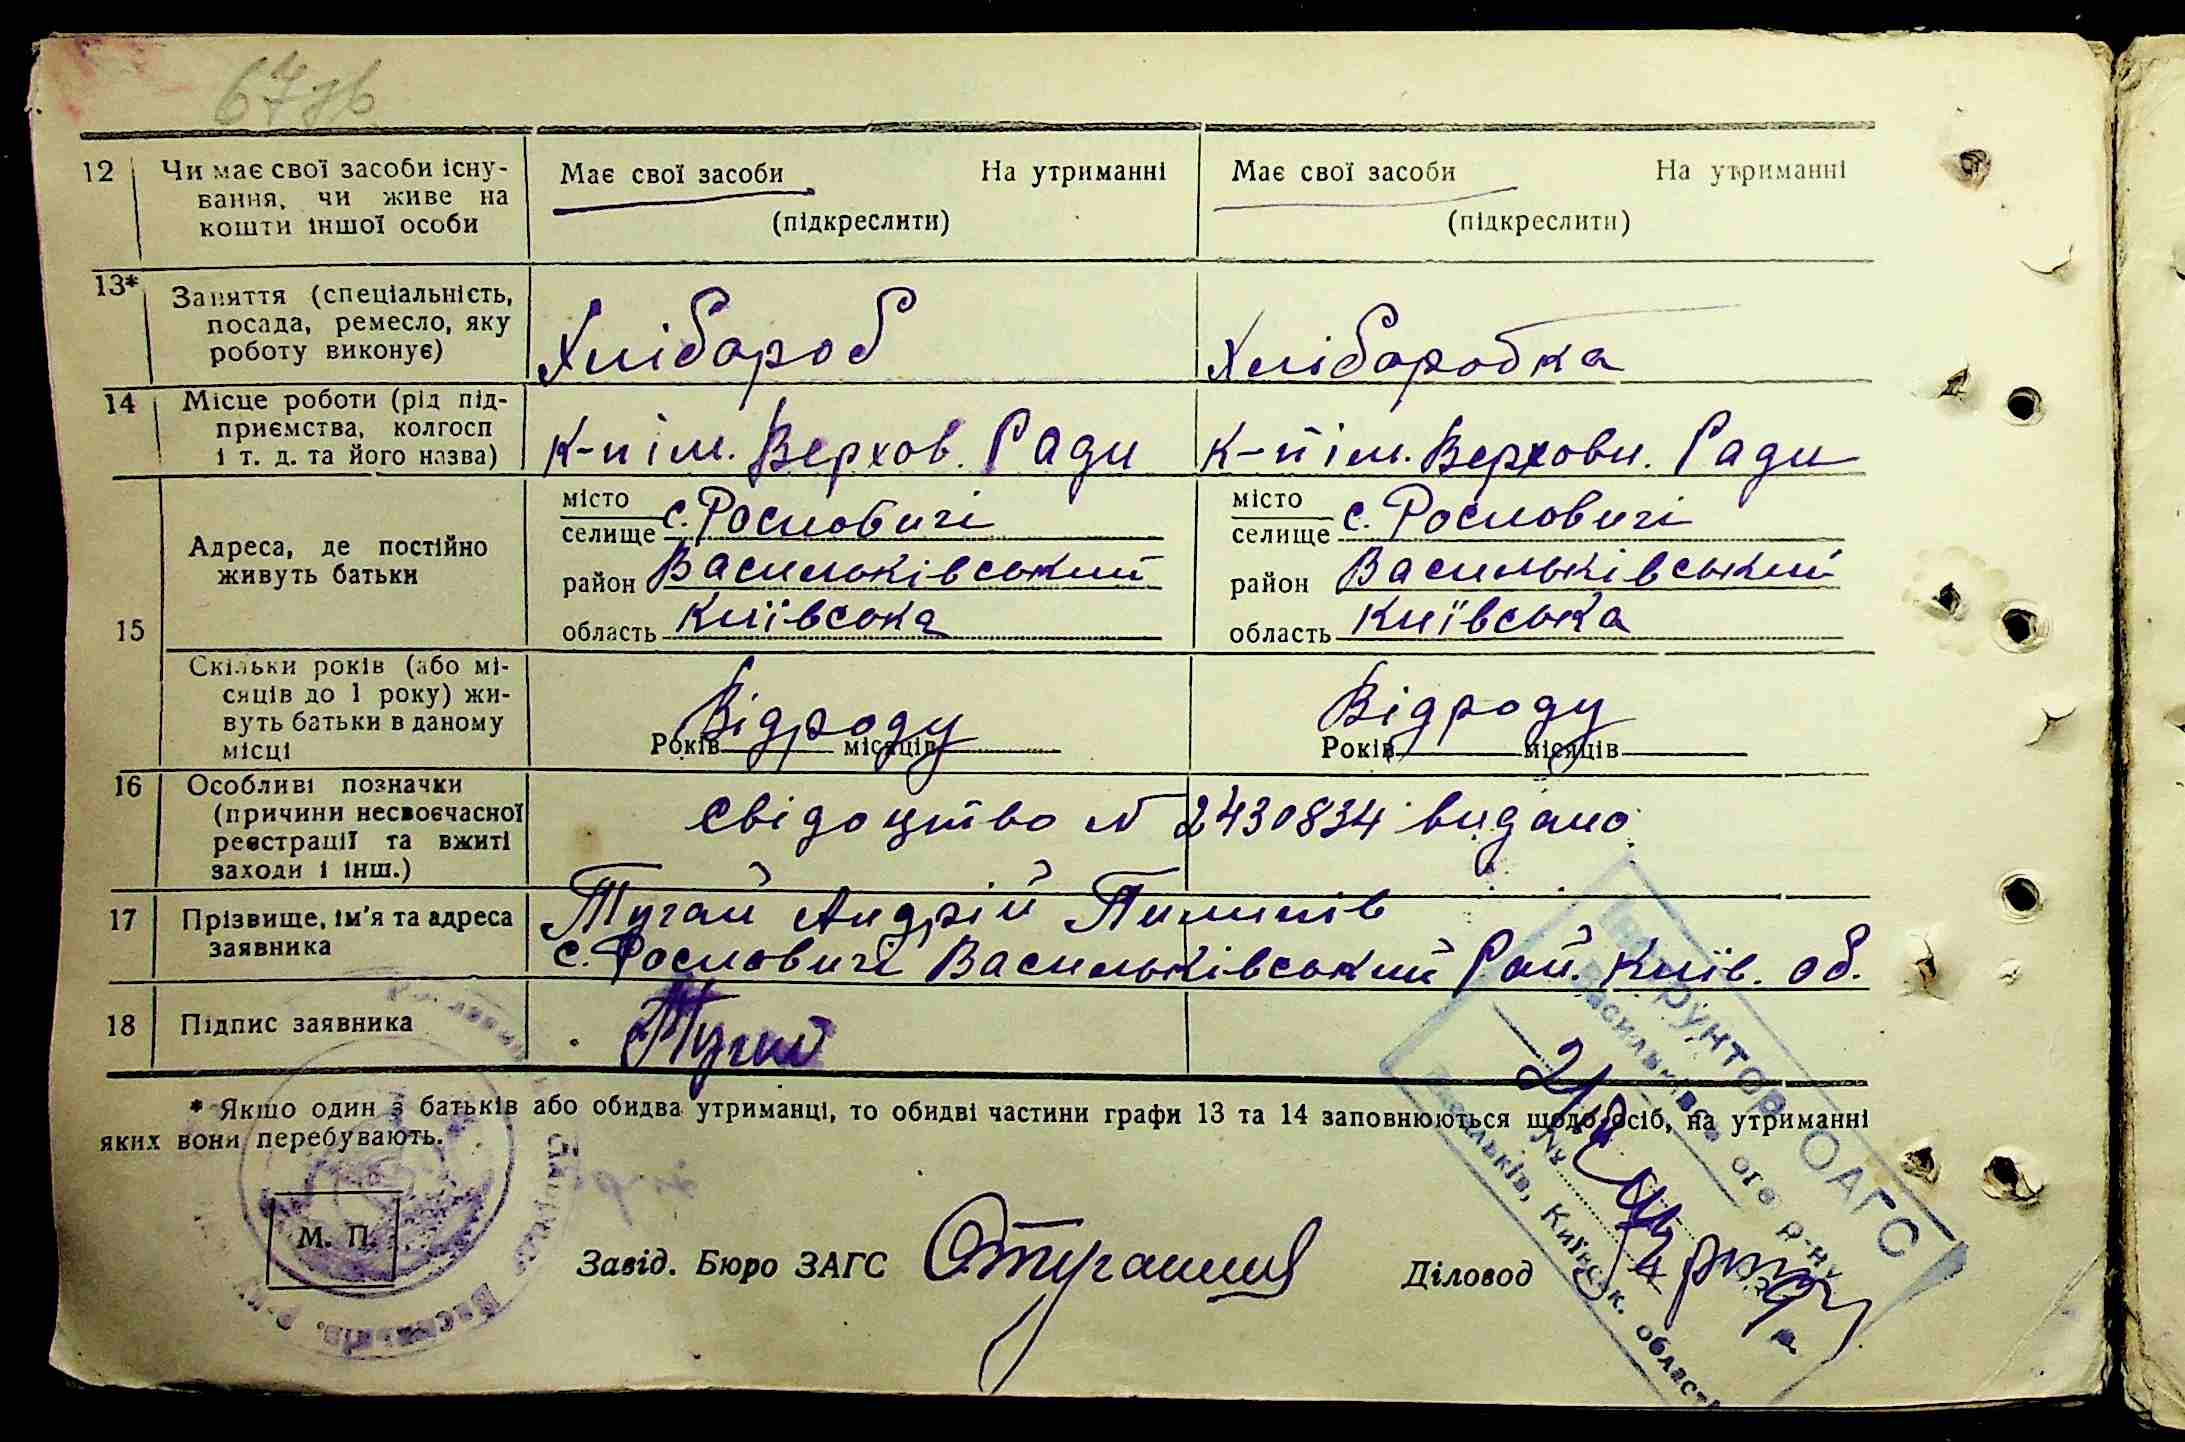 67зв
12 Чи має свої засоби існу-
вання, чи живе на
кошти іншої особи
Має свої засоби На утриманні
(підкреслити)
Має свої засоби На утриманні
(підкреслити)
13* Заняття (спеціальність,
посада, ремесло, яку
роботу виконує)
Хлібороб
Хліборобка
14 Місце роботи (рід під-
приємства, колгосп
і т. д. та його назва)
К-п ім. Верхов. Ради
К-п ім. Верховн. Ради
15 Адреса, де постійно
живуть батьки
місто
селище с. Рословичі
район Васильківський
область Київська
місто
селище с. Рословичі
район Васильківський
область Київська
Скільки років (або мі-
сяців до 1 року) жи-
вуть батьки в даному
місці
Відроду
Років місяців
Відроду
Років місяців
16 Особливі позначки
(причини несвоєчасної
реєстрації та вжиті
заходи і інш.)
Свідоцтво N 2430834 видано
17 Прізвище, ім'я та адреса
заявника
Тугай Андрій Пилипів
с. Рословичі Васильківський Рай. Київ. об.
18 Підпис заявника
Тугай
* Якщо один з батьків або обидва утриманці, то обидві частини графи 13 та 14 заповнюються щодо осіб, на утриманні
яких вони перебувають.
М. П.
Завід. Бюро ЗАГС
Діловод
ОАГС
Васильківського р-ну
Васильків, Київськ. област